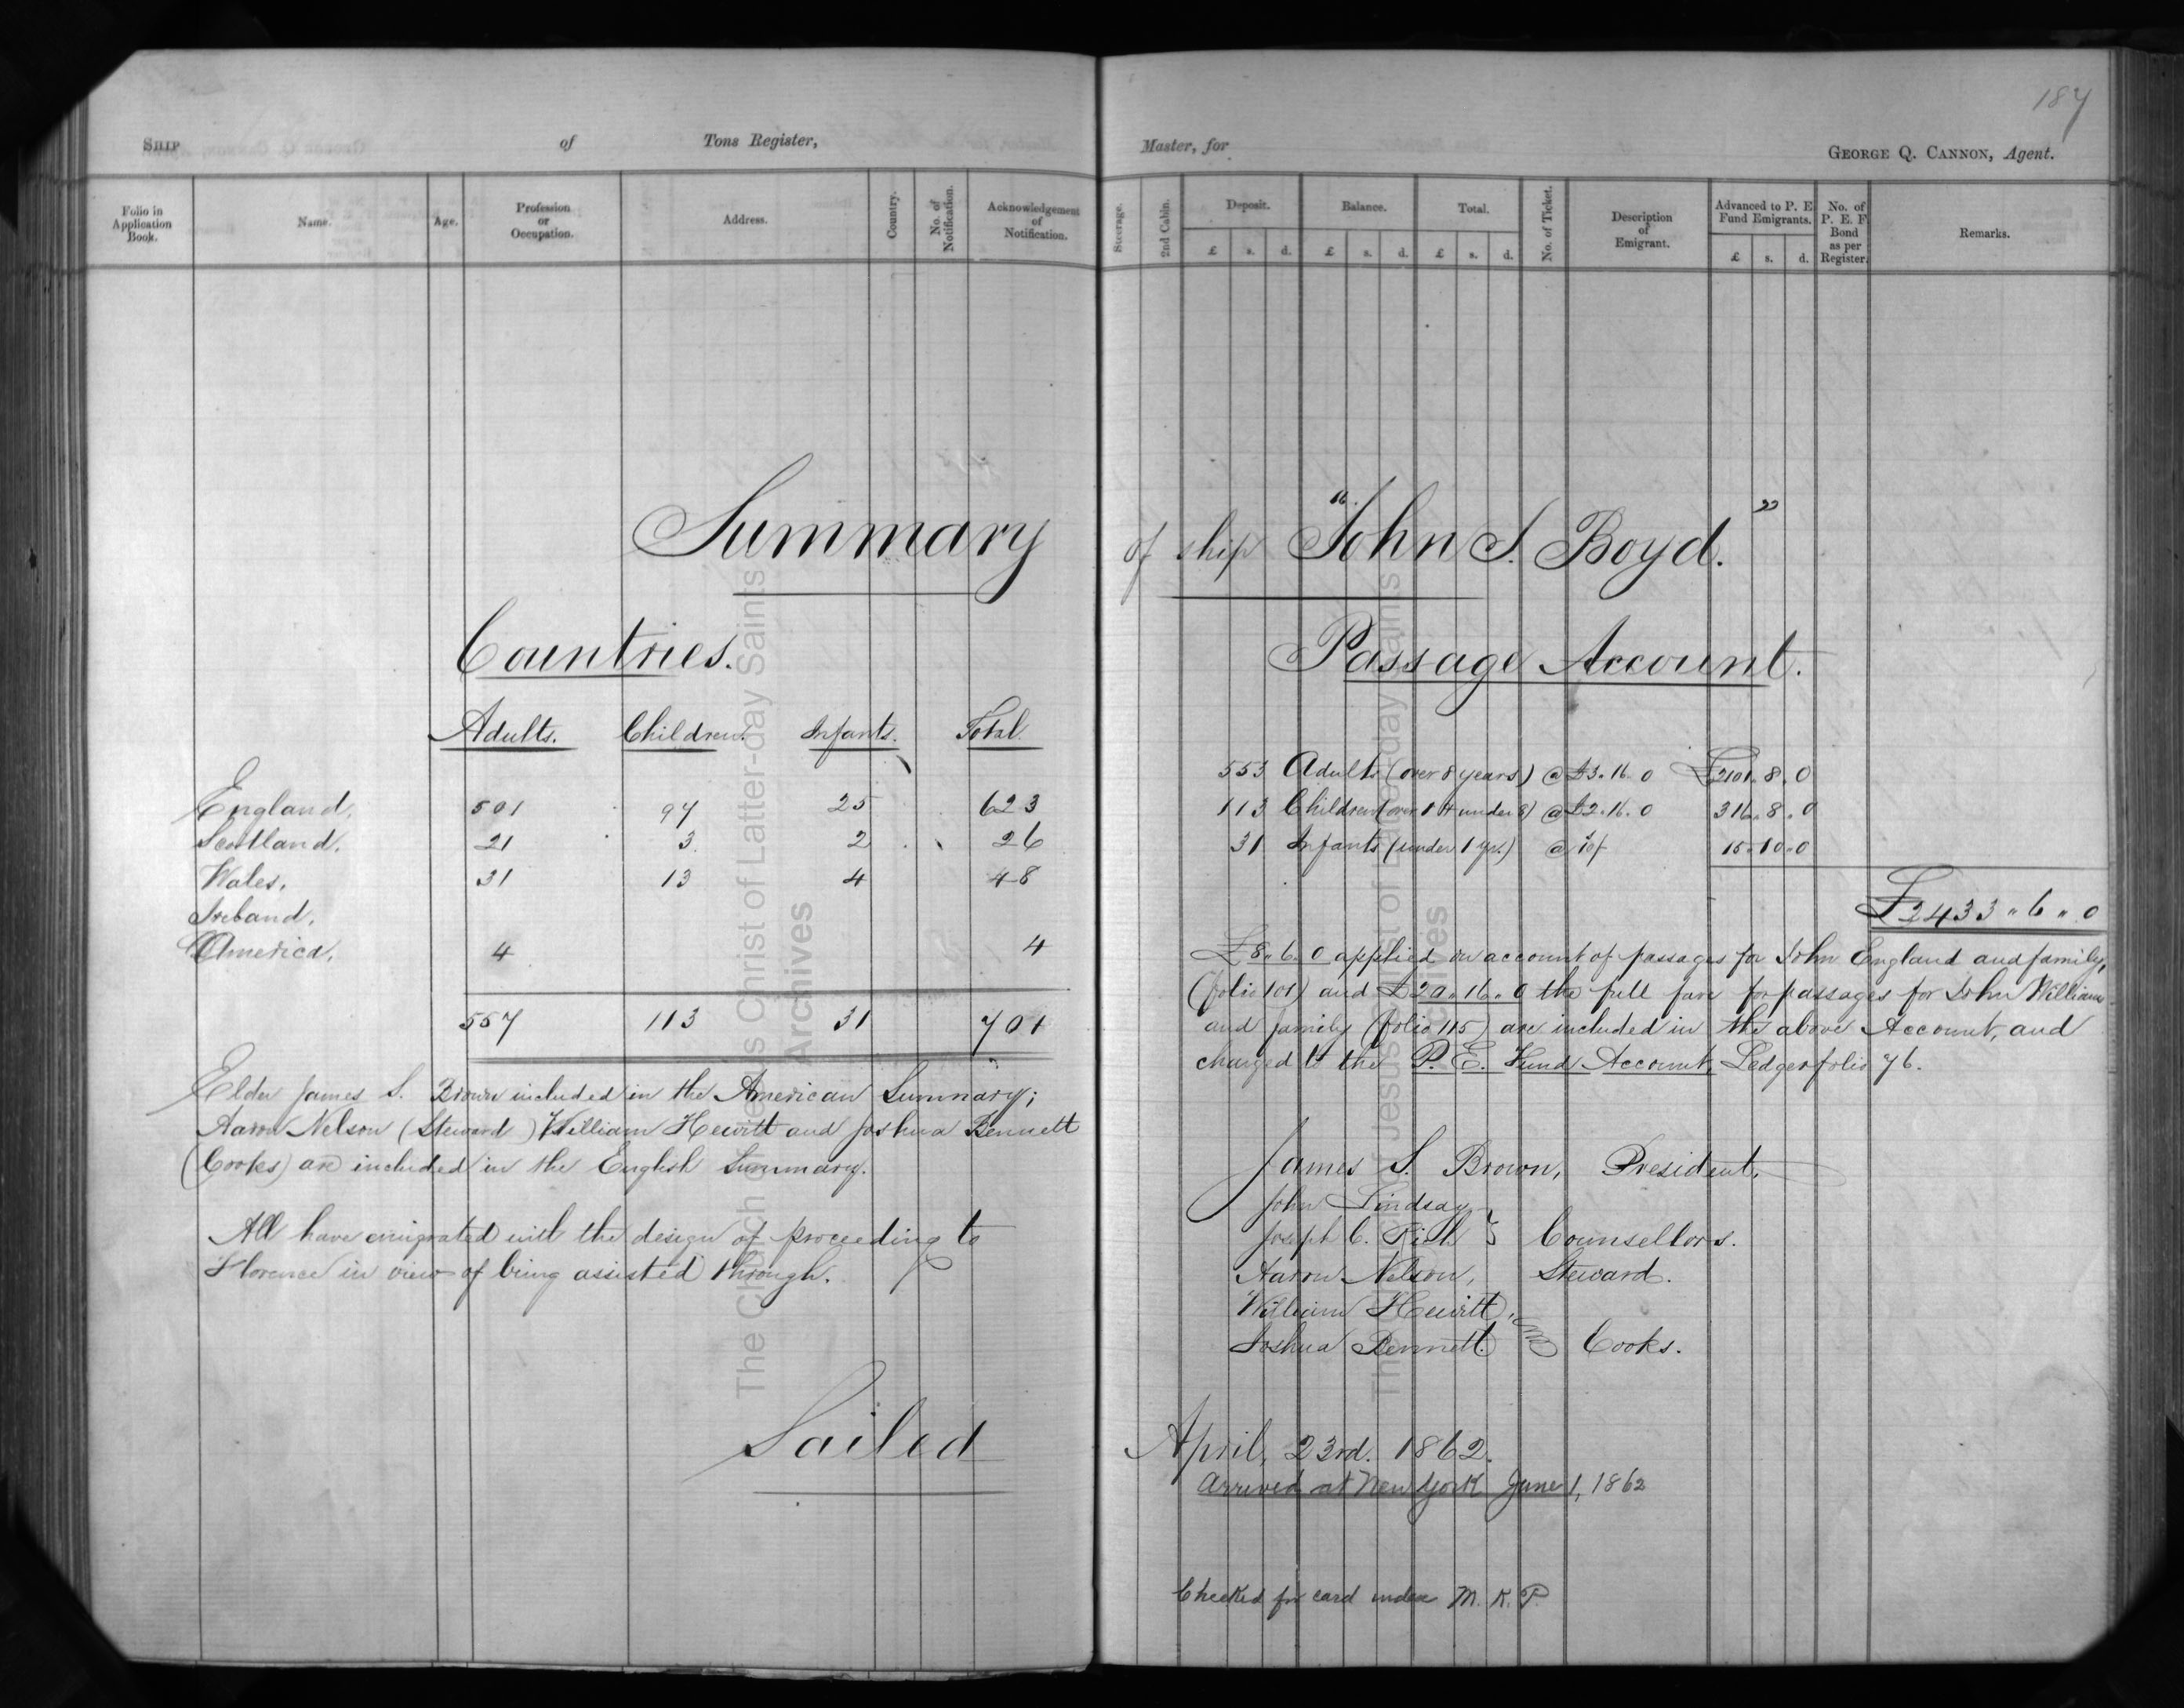 187
SHIP of Tons Register,
Master, for GEORGE Q. CANNON, Agent.
Folio in Application Book. Name. Age. Profession or Occupation. Address. Country. No. of Notification. Acknowledgement of Notification.
Steerage. 2nd Cabin. Deposit. Balance. Total. No. of Ticket. Description of Emigrant. Advanced to P. E. Fund Emigrants. No. of P. E. F. Bond as per Register. Remarks.
£ s. d. £ s. d. £ s. d. £ s. d.
Summary of ship "John J. Boyd."
Countries.
Adults. Children. Infants. Total.
England, 501 97 25 623
Scotland, 21 3 2 26
Wales, 31 13 4 48
Ireland,
America, 4 4
557 113 31 701
Elder James S. Brown included in the American Summary;
Aaron Nelson (Steward) William Hewitt and Joshua Bennett
(Cooks) are included in the English Summary.
All have emigrated with the design of proceeding to
Florence in view of being assisted through.
Passage Account.
553 Adults (over 8 years) @ £3.16.0 £2101.8.0
113 Children (over 1 & under 8) @ £2.16.0 316.8.0
31 Infants (under 1 yr.) @ 10/ 15.10.0
£2433"6"0
£8"6.0 applied on account of passages for John England and family,
(folio 101) and £20"16"0 the full fare for passages for John Williams
and family (folio 115) are included in the above Account, and
charged to the P. E. Fund Account, Ledger folio 76.
James S. Brown, President,
John Lindsay
Joseph C. Rich } Counsellors.
Aaron Nelson, Steward.
William Hewitt,
Joshua Bennett } Cooks.
Sailed April, 23rd. 1862.
Arrived at New York June 1, 1862
Checked for card index M. K. P.
The Church of Jesus Christ of Latter-day Saints
Archives
The Church of Jesus Christ of Latter-day Saints
Archives